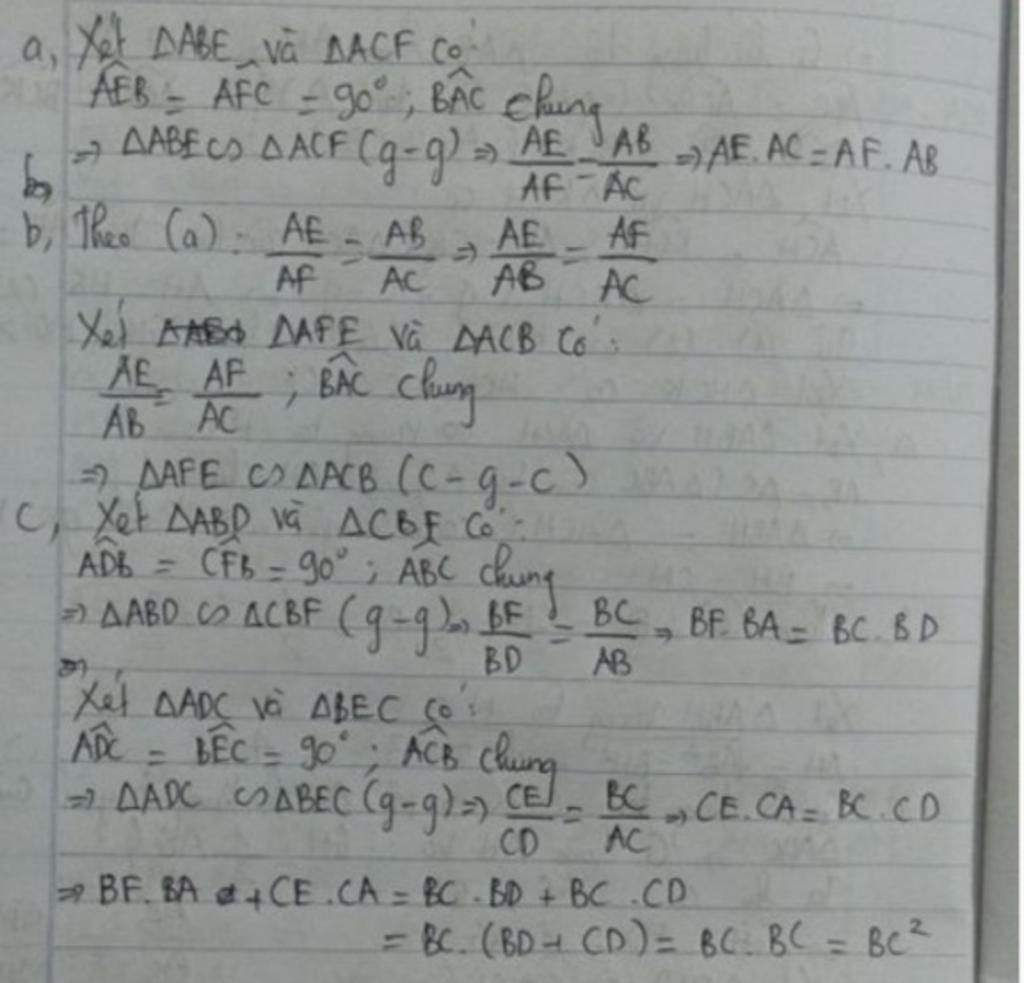 a, Xét ΔABE và ΔACF có:
AÊB = AF̂C = 90°; BÂC chung
⇒ ΔABE ∽ ΔACF (g-g) ⇒ AE/AF = AB/AC ⇒ AE.AC = AF.AB
b,
b, Theo (a): AE/AF = AB/AC ⇒ AE/AB = AF/AC
Xét ΔAFE và ΔACB có:
AE/AB = AF/AC ; BÂC chung
⇒ ΔAFE ∽ ΔACB (c-g-c)
c, Xét ΔABD và ΔCBF có:
AD̂B = CF̂B = 90°; AB̂C chung
⇒ ΔABD ∽ ΔCBF (g-g) ⇒ BF/BD = BC/AB ⇒ BF.BA = BC.BD
⇒
Xét ΔADC và ΔBEC có:
AD̂C = BÊC = 90°; AĈB chung
⇒ ΔADC ∽ ΔBEC (g-g) ⇒ CE/CD = BC/AC ⇒ CE.CA = BC.CD
⇒ BF.BA + CE.CA = BC.BD + BC.CD
= BC.(BD + CD) = BC.BC = BC²